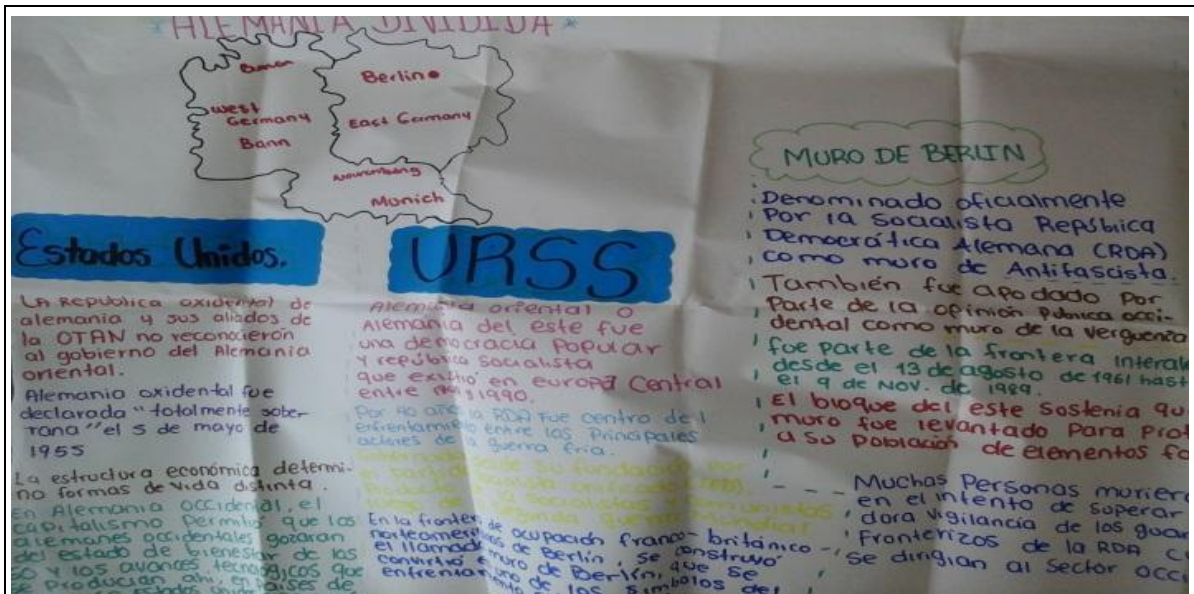 *ALEMANIA DIVIDIDA*
West
Germany
Bann
Berlin
East Germany
Munich
Estados Unidos.
LA Republica oxidental de
alemania y sus aliados de
la OTAN no reconocierón
al gobierno del Alemania
oriental.
Alemania oxidental fue
declarada "totalmente sobe-
rana" el 5 de mayo de
1955
La estructura económica determi-
no formas de vida distinta.
En Alemania occidental, el
capitalismo Permitio que los
alemanes occidentales gozaran
del estado de bienestar de los
50 y los avances tecnologicos que
se producian ahi, en paises de
URSS
Alemania oriental o
Alemania del este fue
una democracia popular
y república socialista
que existio en europa Central
entre 1990.
Por 40 años la RDA fue centro del
enfrentamiento entre las Principales
actores de la guerra fria.
desde su fundación por
En la frontera de ocupación franco-britónico-
norteameri de Berlin, se construyó
el llamado muro de Berlin, que se
convirtió en uno de los simbolos del
enfrentamiento
MURO DE BERLIN
Denominado oficialmente
Por la Socialista Repsbica
Democrática Alemana (RDA)
como muro de Antifascista.
También fue apodado por
Parte de la opinión Publica occi-
dental como muro de la verguenza
fue parte de la frontera interale
desde el 13 de agosto de 1961 hast
el 9 de NOV. de 1989.
El bloque del este Sostenia qu
muro fue levantado Para Prot
a su Población de elementos fa
Muchas Personas muriero
en el intento de superar
dora vigilancia de los guar
Fronterizos de la RDA c
se dirigian al Sector occi